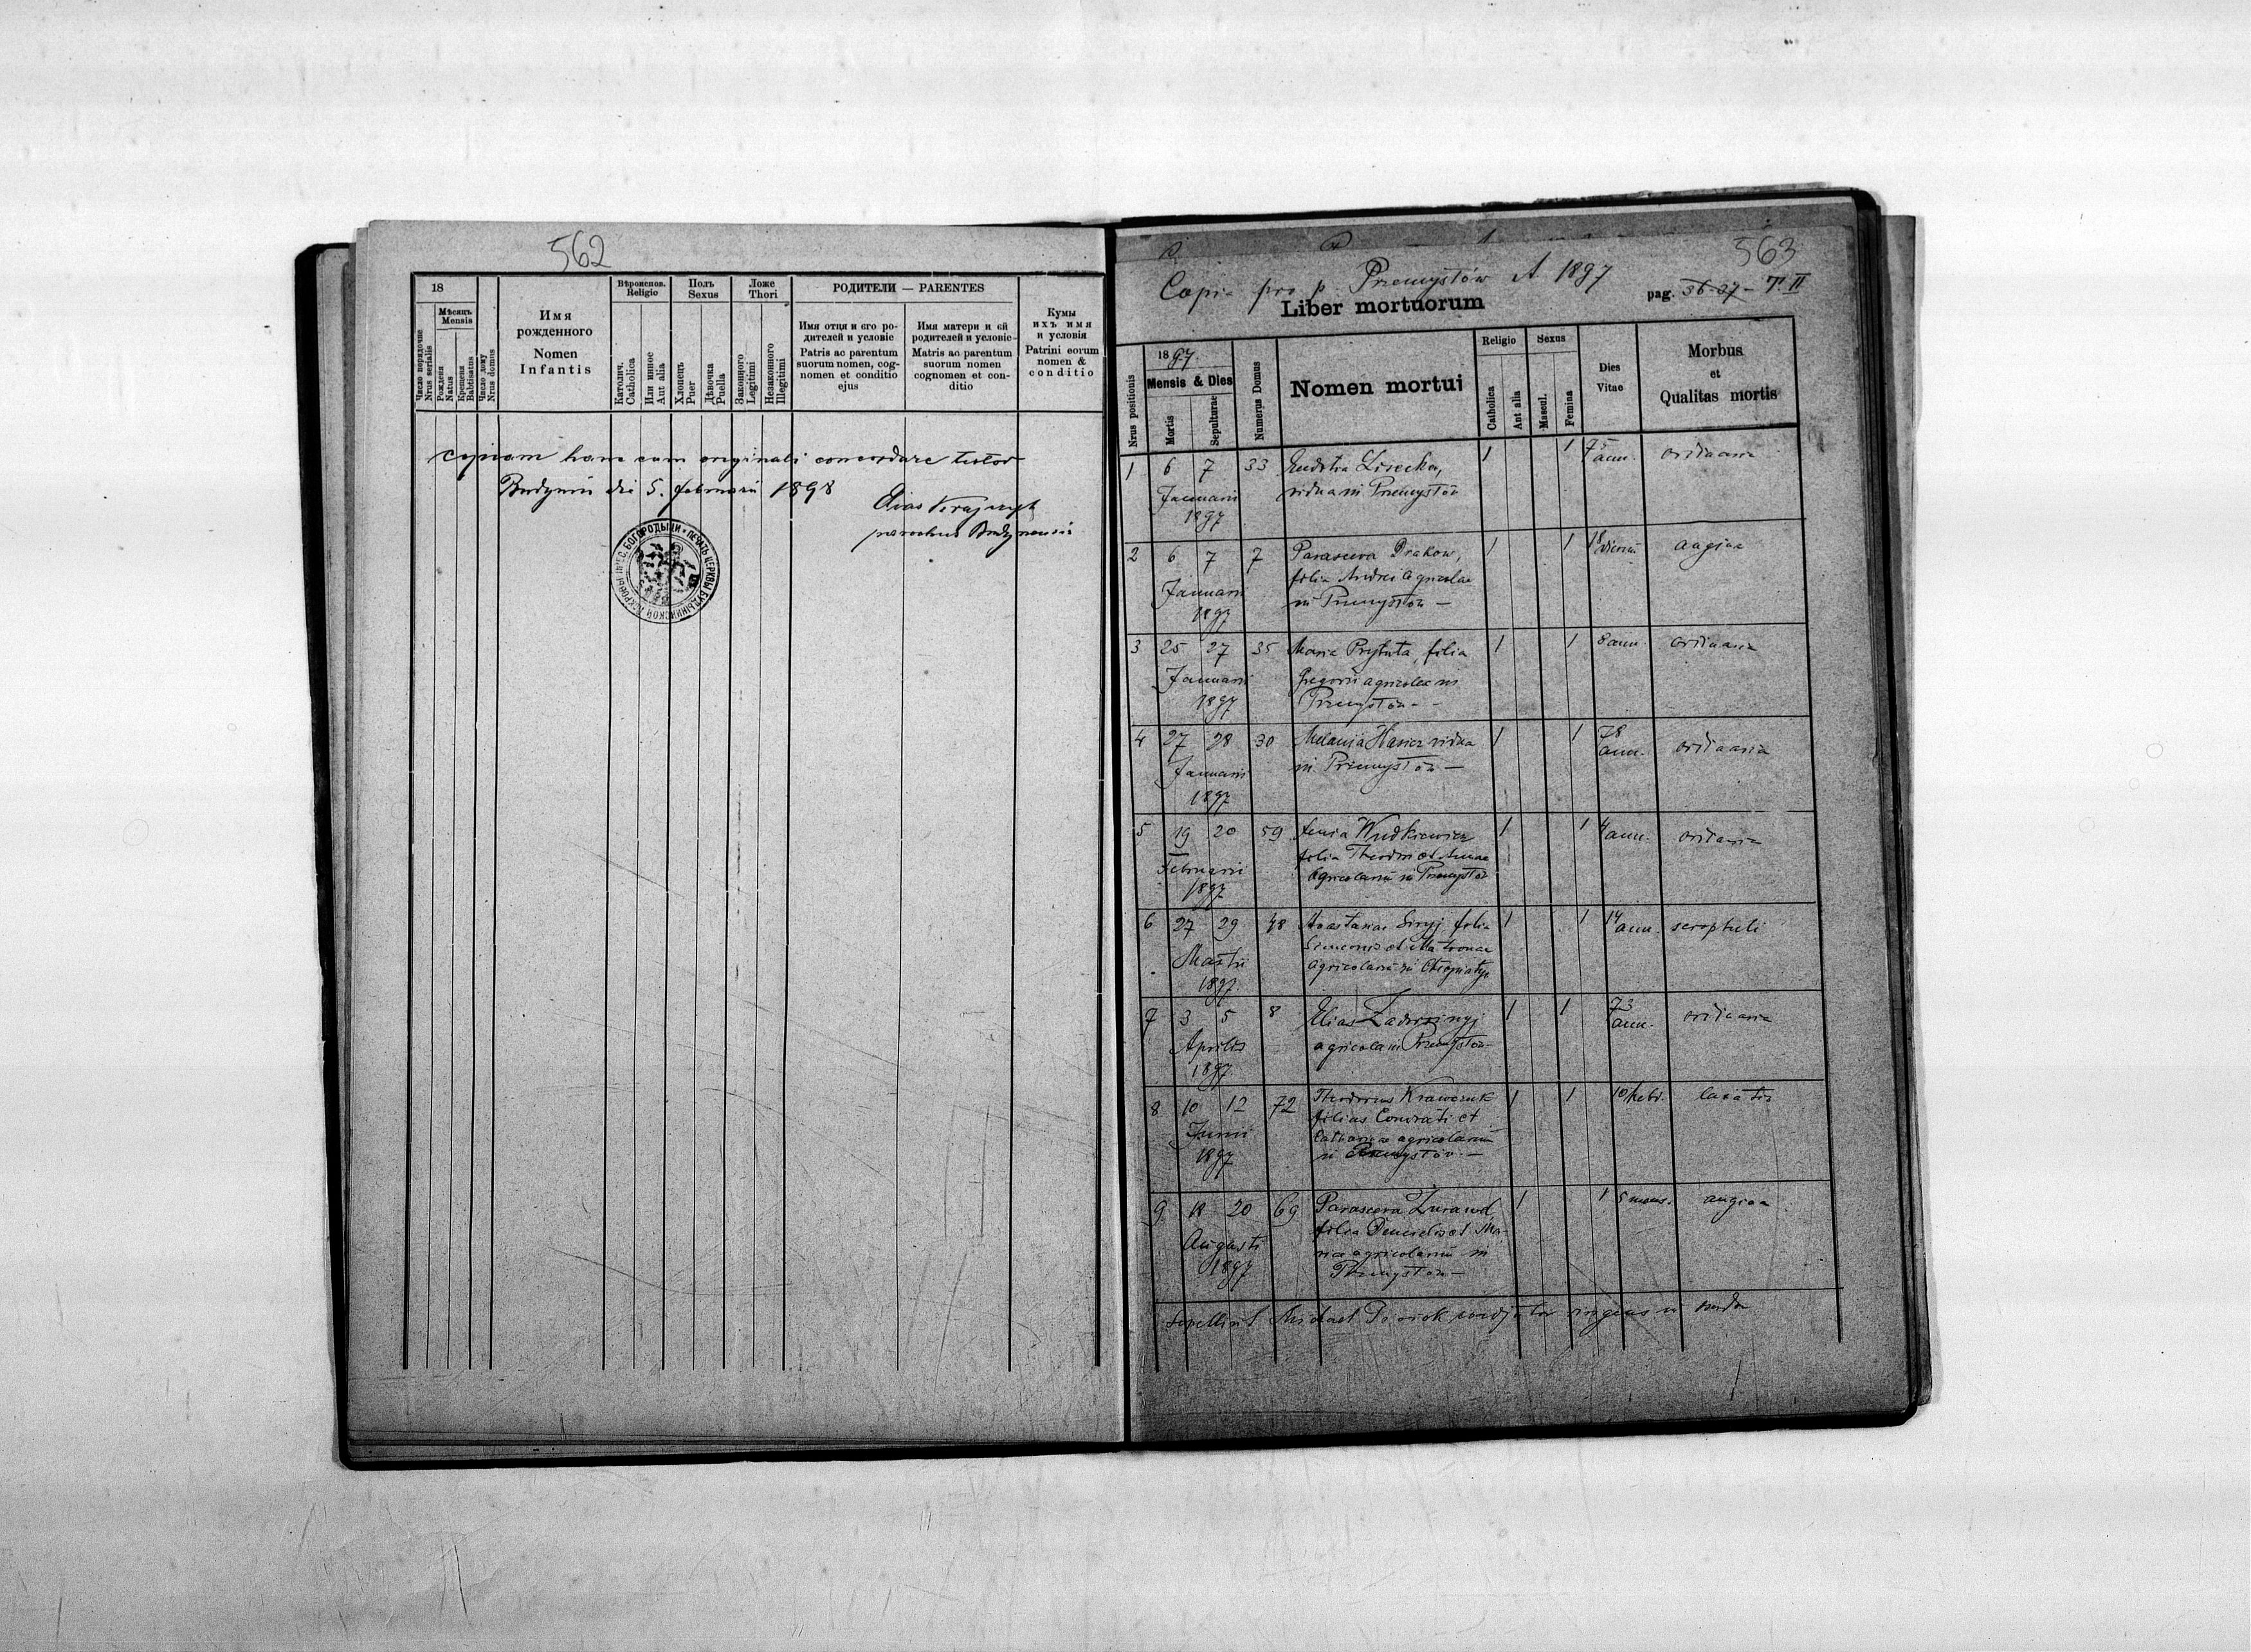 562
18
Мѣсяцъ
Mensis
Число порядочне
Nrus serialis
Рождейя
Natus
Крещенія
Babtisatus
Число дому
Nrus domus
Имя
рожденного
Nomen
Infantis
Вѣроиспов.
Religio
Католич.
Catholica
Или инное
Aut alia
Полъ
Sexus
Хлопецъ
Puer
Дѣвочка
Puella
Ложе
Thori
Законного
Legitimi
Незаконного
Illegitimi
РОДИТЕЛИ — PARENTES
Имя отця и єго ро-
дителей и условіє
Patris ac parentum
suorum nomen, cog-
nomen et conditio
ejus
Имя матери и єй
родителей и условіє
Matris ac parentum
suorum nomen
cognomen et con-
ditio
Кумы
ихъ имя
и условія
Patrini eorum
nomen &
conditio
copiam hanc cum originali concordare testor
Budynin die 5. februarii 1898
Elias
parochus Budynensis
563
Copia pro p. Przemysłów A. 1897
Liber mortuorum
pag. 36-37 - T. II
Nrus positionis
1897
Mensis & Dies
Mortis
Sepulturae
Numerus Domus
Nomen mortui
Religio
Catholica
Aut alia
Sexus
Mascul.
Femina
Dies
Vitae
Morbus
et
Qualitas mortis
1 6 7 33 Eudokia Lisecka, 1 1 75 ann. ordinaria
Januarii vidua in Przemysłów
1897
2 6 7 7 Parasceva Drakow, 1 1 18 dierum angina
Januarii filia Andrei agricolae
1897 in Przemysłów —
3 25 27 35 Maria Prytuła, filia 1 1 8 ann. ordinaria
Januarii Gregorii agricolae in
1897 Przemysłów -
4 27 28 30 Melania Hasicz vidua 1 1 78 ann. ordinaria
Januarii in Przemysłów —
1897
5 19 20 59 Wudkiewicz 1 1 4 ann. ordinaria
Februarii filia Theodori et Annae
1897 agricolarum in Przemysłów
6 27 29 48 Anastasia filia 1 1 14 ann. scrophuli
Martii Simeonis et Matronae
1897 agricolarum in
7 3 5 8 Elias 1 1 73 ann. ordinaria
Aprilis agricola in Przemysłów
1897
8 10 12 72 Theodorus Krawczuk 1 1 10 hebd.
Junii filius Conrati et
1897 Catharinae agricolarum
in Przemysłów —
9 18 20 69 Parasceva Zurawel 1 1 5 mens. angina
Augusti filia et Ma-
1897 riae agricolarum in
Przemysłów —
sepelivit Michael